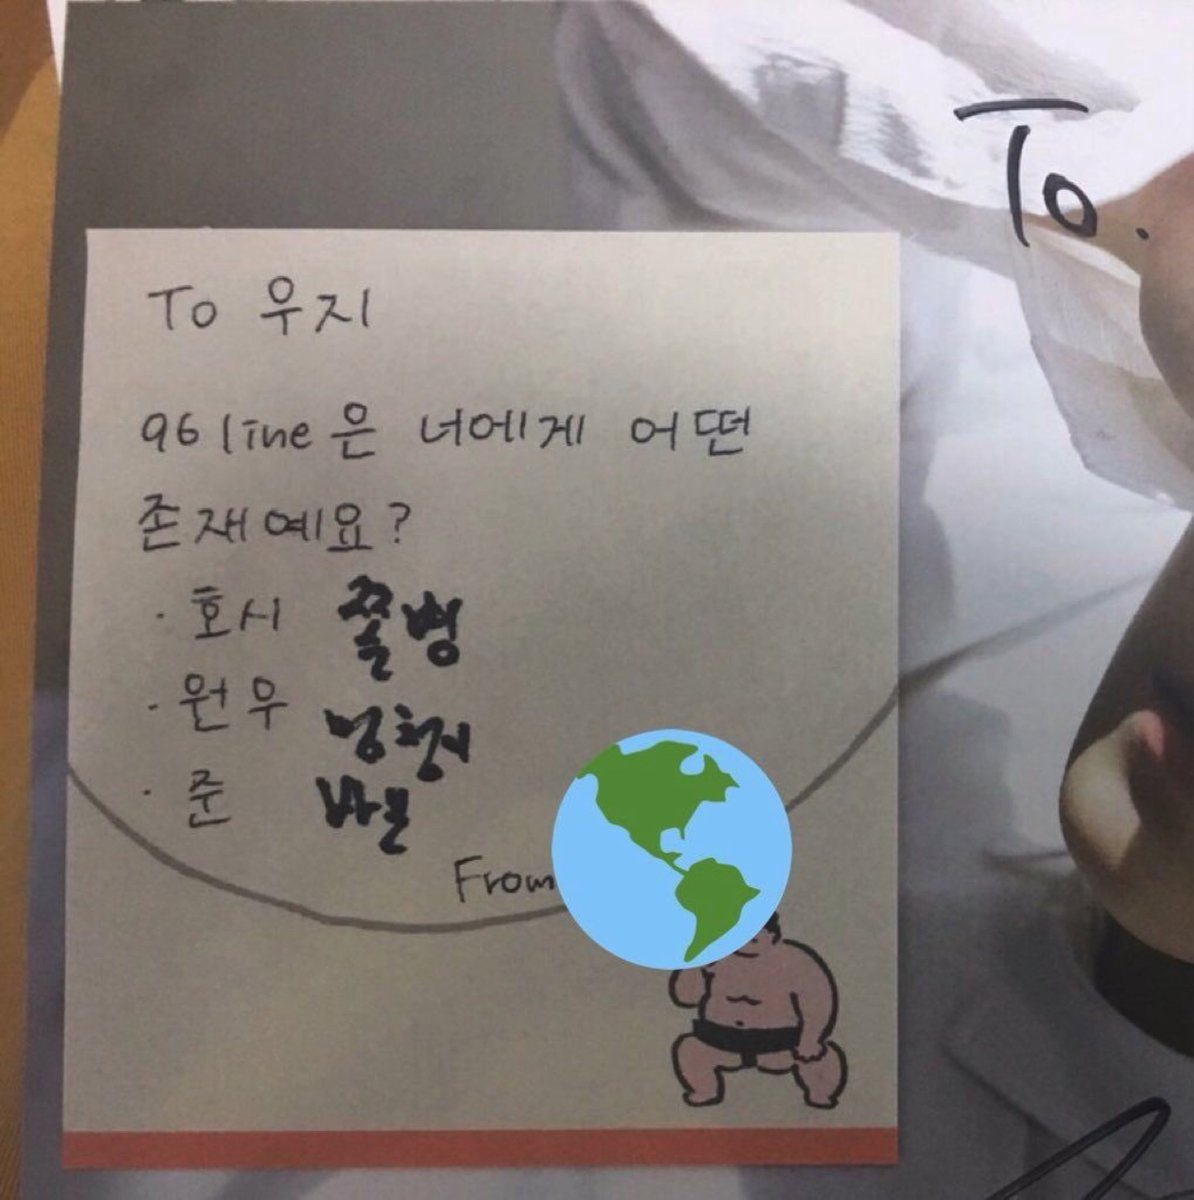 To.
To 우지
96 line은 너에게 어떤
존재예요?
· 호시 쫄병
· 원우 멍청이
· 준 바보
From